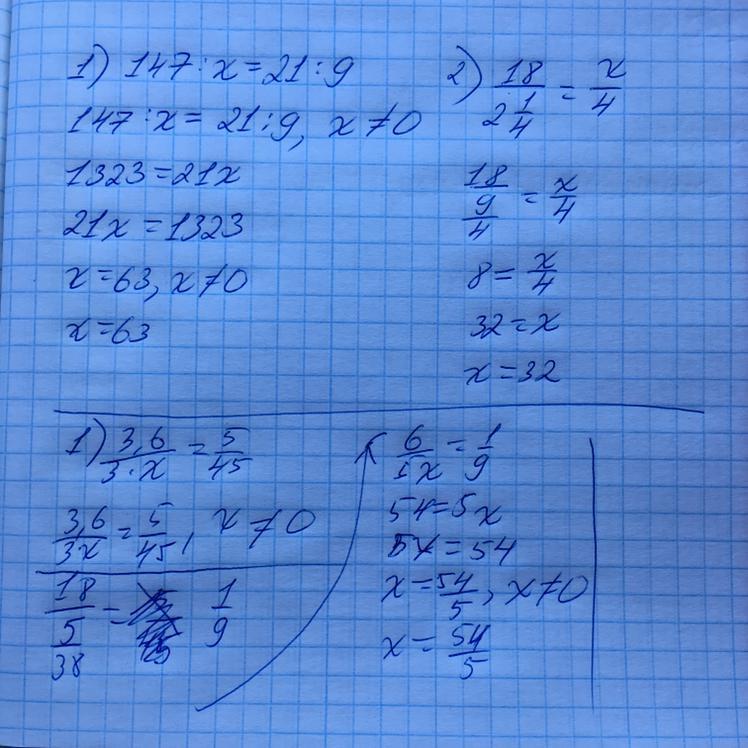 1) 147 : x = 21 : 9
147 : x = 21 : 9, x ≠ 0
1323 = 21x
21x = 1323
x = 63, x ≠ 0
x = 63
2) 18/(2 1/4) = x/4
18/(9/4) = x/4
8 = x/4
32 = x
x = 32
1) 3,6/(3·x) = 5/45
3,6/(3x) = 5/45, x ≠ 0
(18/5)/38 = 1/9
6/(5x) = 1/9
54 = 5x
5x = 54
x = 54/5, x ≠ 0
x = 54/5